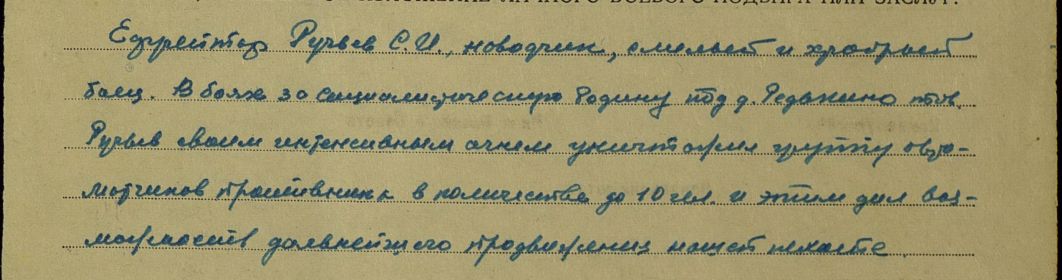 ИЗЛОЖЕНИЕ ЛИЧНОГО БОЕВОГО ПОДВИГА ИЛИ ЗАСЛУГ.
Ефрейтор Ручьев С.И., наводчик, смелый и храбрый
боец. В боях за социалистическую Родину под д. Редькино тов.
Ручьев своим интенсивным огнем уничтожил группу авто-
матчиков противника в количестве до 10 чел. и этим дал воз-
можность дальнейшего продвижения нашей пехоте.